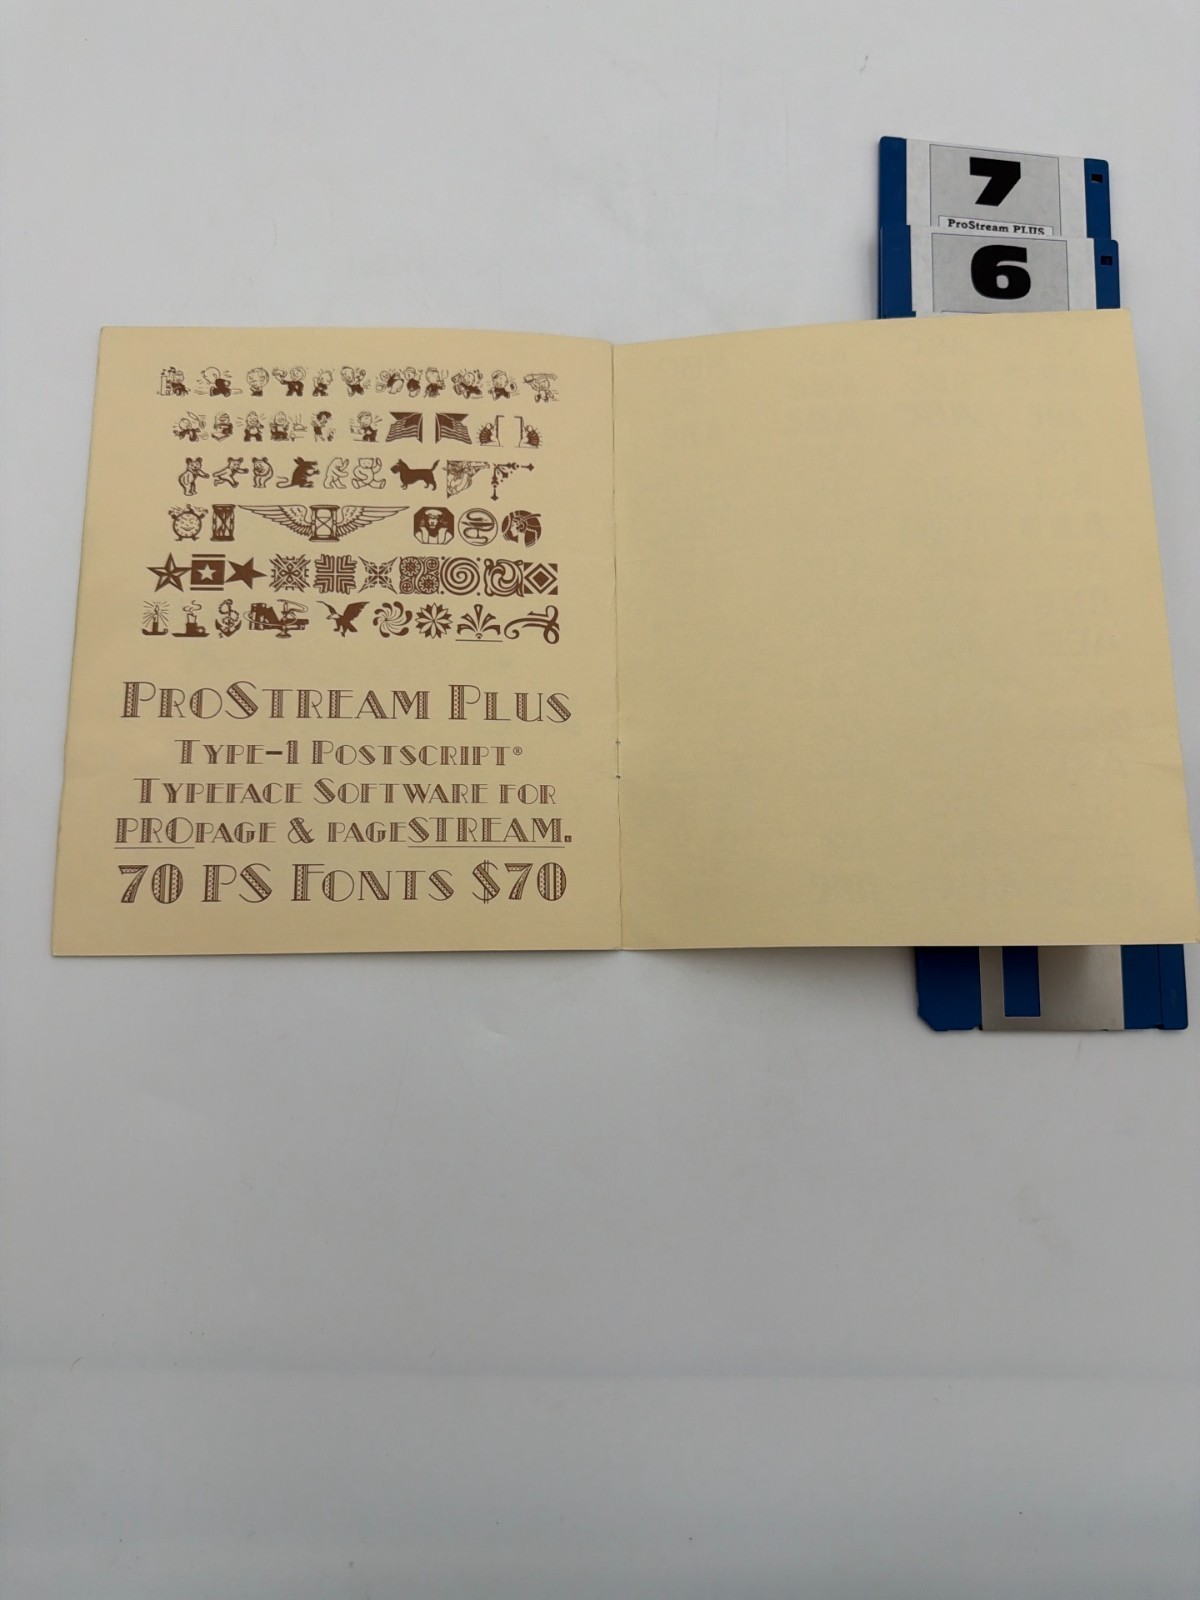 7
ProStream PLUS
6
ProStream Plus
Type-1 Postscript®
Typeface Software for
PROpage & pageSTREAM.
70 PS Fonts $70